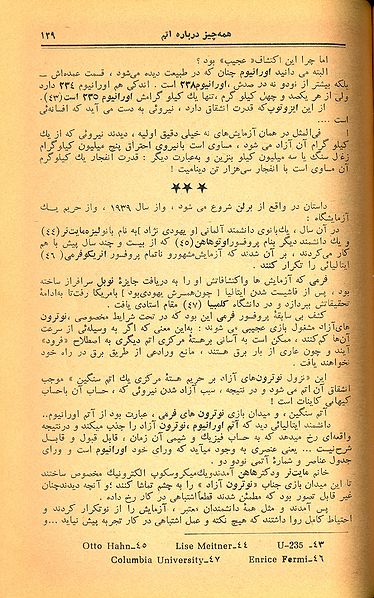 همه‌چیز درباره اتم ۱۲۹
اما چرا این اکتشاف« عجیب» بود ؟
البته می دانید اورانیوم چنان که در طبیعت دیده می‌شود ، قسمت عمده‌اش ــ
بلکه بیشتر از نودو نه در صدش ، اورانیوم۲۳۸ است . اندکی هم اورانیوم ۲۳۴ دارد
ولی از هر یکصد و چهل کیلو گرم ،تنها یک کیلو گرامش اورانیوم ۲۳۵ است(۴۳).
از این ایزوتوپ‌که قدرت انشقاق دارد ، نیروئی به دست می آید که افسانه‌ئی
است ....
! فی‌المثل در همان آزمایش‌های نه خیلی دقیق اولیه ، دیدند نیروئی که از یک
کیلو گرام آن آزاد می شود ، مساوی است بانیروی احتراق پنج میلیون کیلوگرام
زغال سنگ یا سه میلیون کیلو بنزین و به‌عبارت دیگر : قدرت انفجار یک کیلوگرم
آن مساوی است با انفجار سی‌هزار تن دینامیت !
★★★
داستان در واقع از برلن شروع می شود ، واز سال ۱۹۳۹ ، واز حریم یک
آزمایشگاه :
در آن سال ، یک‌بانوی دانشمند آلمانی او یهودی نژاد )به نام بانولیزه‌مایت‌نر (۴۴)
و یک دانشمند دیگر بنام پروفسوراوتوهاهن(۴۵) که از بیست و چند سال پیش با هم
کار می‌کردند ، بر آن شدند که آزمایش‌مشهورو ناتمام پروفسور انریکوفرمی (۴۶)
ایتالیائی را تکرار کنند .
فرمی که آزمایش ها واکتشافاتش او را به دریافت جایزهٔ نوبل سرافراز ساخته
بود ، پس از فاشیست شدن ایتالیا (چون‌همسرش یهودی‌بود)بامریکا رفت‌تا به‌ادامهٔ
تحقیقاتش بپردازد و در دانشگاه کلمبیا (۴۷) مقام استادی یافت .
کشف بی سابقهٔ پروفسور فرمی این بود که در تحت شرایط مخصوصی ،نوترون
های‌آزاد مشغول بازی عجیبی می شوند : به‌این معنی که اگر به‌وسیله‌ئی از سرعت
آن‌ها کم‌کنند ، ممکن است به آسانی برهستهٔ مرکزی اتم دیگری به اصطلاح «فرود»
آیند و چون عاری از بار برق هستند ، مانع ورادعی از طریق برق در راه خود
نخواهند یافت .
این «نزول نوترون‌های آزاد بر حریم هستهٔ مرکزی یک اتم سنگین » موجب
انشقاق آن اتم می شود و در نتیجه ، سبب آزاد شدن نیروئی که ، حساب آن باحساب
کیهان و کاینات است !
اتم سنگین ، و میدان بازی نوترون های فرمی ، عبارت بود از اتم اورانیوم..
دانشمند ایتالیائی دید که اتم اورانیوم ، نوترون آزاد را جذب میکند و درنتیجه
واقعه‌ای رخ میدهد که به حساب فیزیک و شیمی آن زمان ، قابل قبول و قابل
شرح‌نیست ... یعنی عنصری به وجود میآید که ورای خود اورانیوم است و ورای
جدول عناصر و شمارهٔ اتمی نودو دو .
خانم مایت‌نر ودکتر هاهن آمدندویک‌میکروسکوپ الکترونیک مخصوص ساختند
تا این میدان بازی جناب «نوترون آزاد » را به چشم تماشا کنند !و آنچه دیدندچنان
غیر قابل تصور بود که مطمئن شدند قطعاًاشتباهی در کار رخ داده .
پس آمدند و مثل همهٔ دانشمندان معتبر ، آزمایش را از نوتکرار کردند و
احتیاط کامل روا داشتند که هیچ نکته و عمل اشتباهی در کار تجربه پیش نیاید ...و
Otto Hahn_۴۵ Lise Meitner_۴۴ U-235 _۴۳
Columbia University_۴۷ Enrice Fermi_۴۶